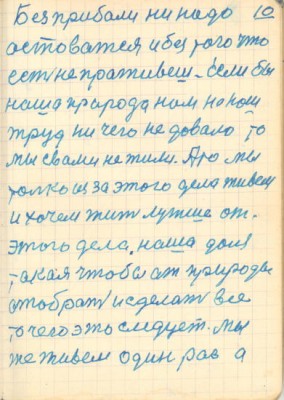 Без прибали ни надо 10
астоватся и без того что
ест не праживеш. Если бы
наша природа нам на наш
труд ни чего не довало то
мы свами не жили. А то мы
толко из за этого дела живем
и хочем жит лутше от.
этого дела. наша доля
такая чтобы ат природы
атобрат и сделат все
то чего это следует. мы
же живем один раз а